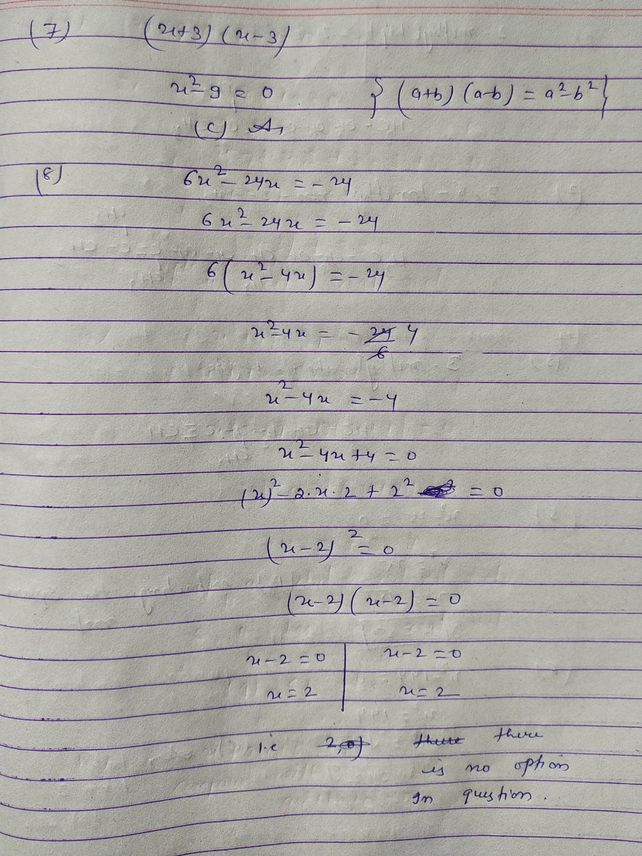 (7) (x+3) (x-3)
x²-9 = 0 { (a+b) (a-b) = a²-b² }
(C) A
(8) 6x² - 24x = - 24
6x² - 24x = - 24
6 ( x² - 4x ) = - 24
x² - 4x = - 24/6 4
x² - 4x = - 4
x² - 4x + 4 = 0
(x)² - 2.x.2 + 2² = 0
(x-2)² = 0
(x-2) (x-2) = 0
x-2 = 0 | x-2 = 0
x = 2 | x = 2
i.e 2,0) these there
is no option
In question.